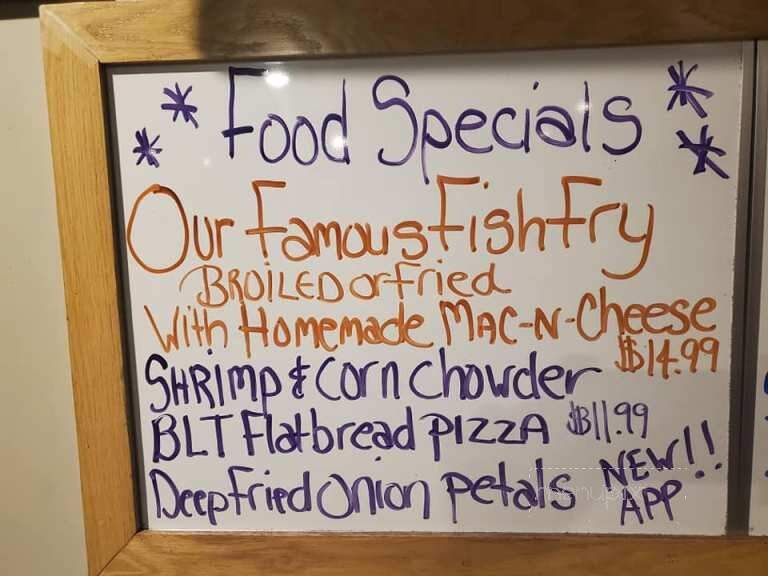 * Food Specials *
* *
Our Famous Fish Fry
BROILED or Fried
With Homemade MAC-N-Cheese
$14.99
SHRimp & Corn Chowder
BLT Flatbread PIZZA $11.99
Deep Fried Onion petals NEW!!
APP
menupix